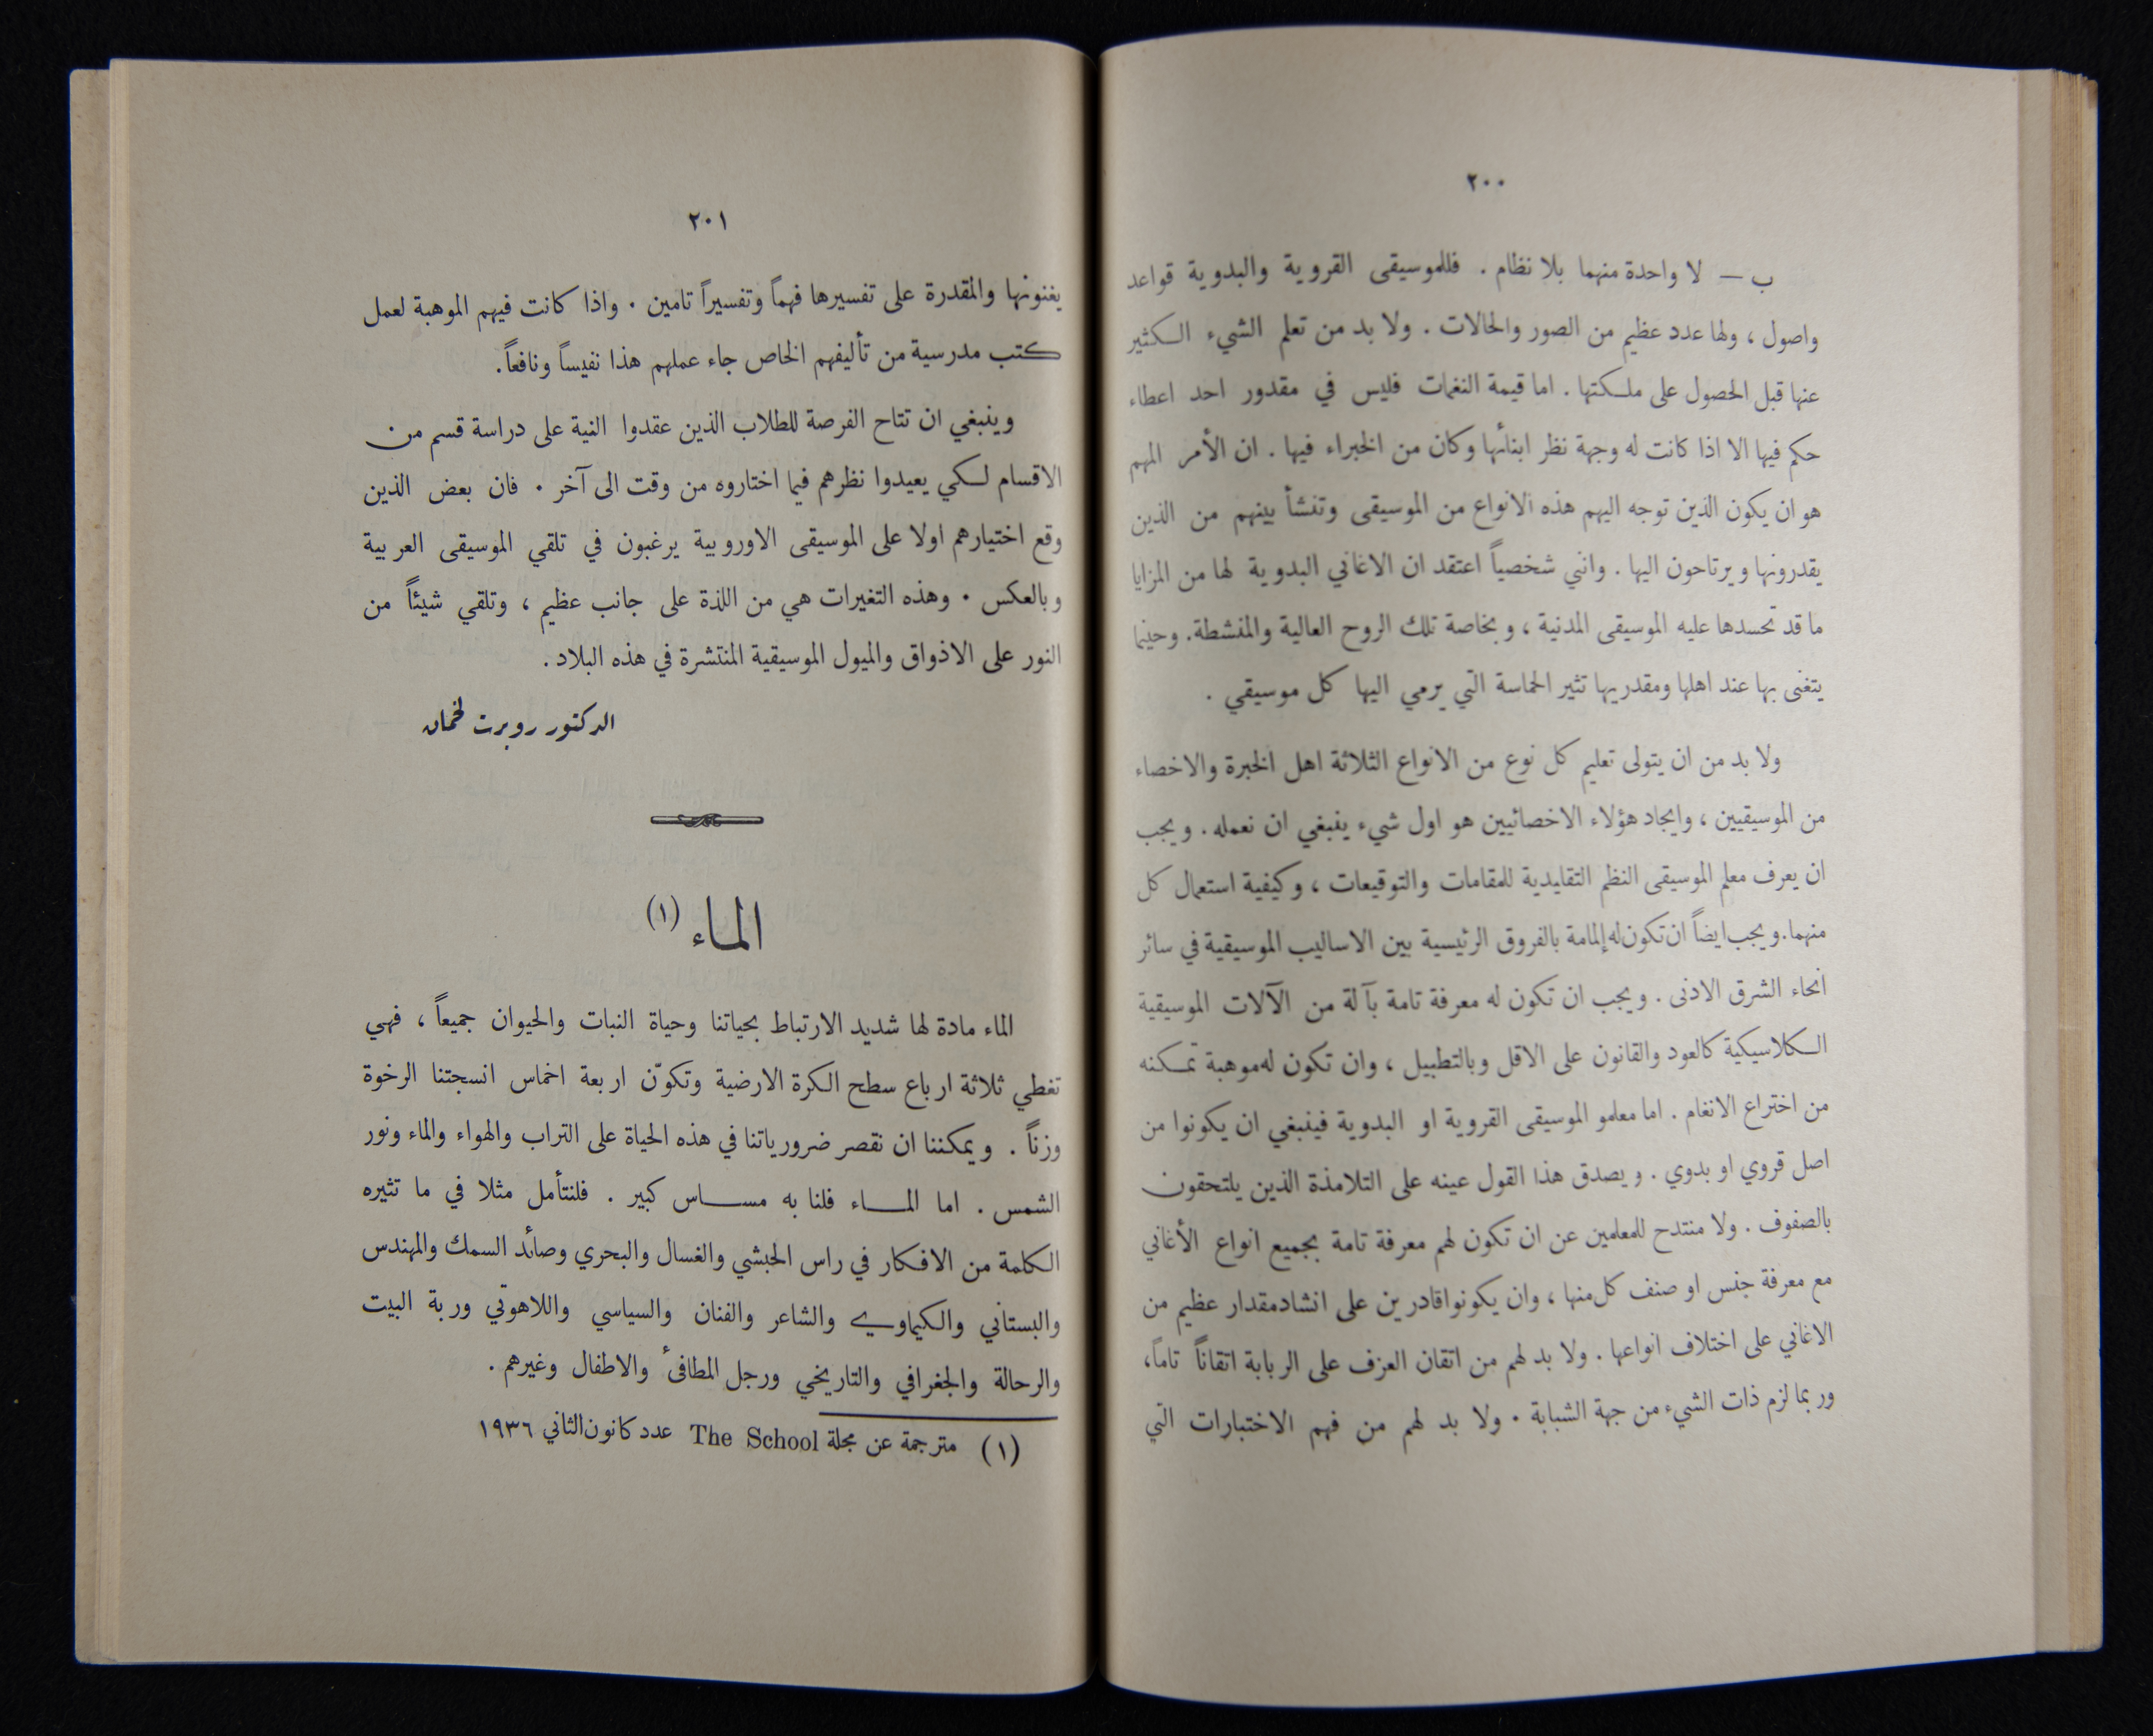 ٢٠٠
ب — لا واحدة منهما بلا نظام . فللموسيقى القروية والبدوية قواعد
واصول ، ولها عدد عظيم من الصور والحالات . ولا بد من تعلم الشيء الكثير
عنها قبل الحصول على ملكتها . اما قيمة النغمات فليس في مقدور احد اعطاء
حكم فيها الا اذا كانت له وجهة نظر ابنائها وكان من الخبراء فيها . ان الأمر المهم
هو ان يكون الذين توجه اليهم هذه الانواع من الموسيقى وتنشأ بينهم من الذين
يقدرونها ويرتاحون اليها . وانني شخصياً اعتقد ان الاغاني البدوية لها من المزايا
ما قد تحسدها عليه الموسيقى المدنية ، وبخاصة تلك الروح العالية والمنشطة . وحينما
يتغنى بها عند اهلها ومقدريها تثير الحماسة التي يرمي اليها كل موسيقي .
ولا بد من ان يتولى تعليم كل نوع من الانواع الثلاثة اهل الخبرة والاخصاء
من الموسيقيين ، وايجاد هؤلاء الاخصائيين هو اول شيء ينبغي ان نعمله . ويجب
ان يعرف معلم الموسيقى النظم التقليدية للمقامات والتوقيعات ، وكيفية استعمال كل
منهما . ويجب ايضاً ان تكون له إلمامة بالفروق الرئيسية بين الاساليب الموسيقية في سائر
انحاء الشرق الادنى . ويجب ان تكون له معرفة تامة بآلة من الآلات الموسيقية
الكلاسيكية كالعود والقانون على الاقل وبالتطبيل ، وان تكون له موهبة تمكنه
من اختراع الانغام . اما معلمو الموسيقى القروية او البدوية فينبغي ان يكونوا من
اصل قروي او بدوي . ويصدق هذا القول عينه على التلامذة الذين يلتحقون
بالصفوف . ولا منتدح للمعلمين عن ان تكون لهم معرفة تامة بجميع انواع الأغاني
مع معرفة جنس او صنف كل منها ، وان يكونوا قادرين على انشاد مقدار عظيم من
الاغاني على اختلاف انواعها . ولا بد لهم من اتقان العزف على الربابة اتقاناً تاماً ،
وربما لزم ذات الشيء من جهة الشبابة . ولا بد لهم من فهم الاختبارات التي
٢٠١
يغنونها والمقدرة على تفسيرها فهماً وتفسيراً تامين . واذا كانت فيهم الموهبة لعمل
كتب مدرسية من تأليفهم الخاص جاء عملهم هذا نفيساً ونافعاً .
وينبغي ان تتاح الفرصة للطلاب الذين عقدوا النية على دراسة قسم من
الاقسام لكي يعيدوا نظرهم فيما اختاروه من وقت الى آخر . فان بعض الذين
وقع اختيارهم اولا على الموسيقى الاوروبية يرغبون في تلقي الموسيقى العربية
وبالعكس . وهذه التغيرات هي من اللذة على جانب عظيم ، وتلقي شيئاً من
النور على الاذواق والميول الموسيقية المنتشرة في هذه البلاد .
الدكتور روبرت لخمان
الماء (١)
الماء مادة لها شديد الارتباط بحياتنا وحياة النبات والحيوان جميعاً ، فهي
تغطي ثلاثة ارباع سطح الكرة الارضية وتكوّن اربعة اخماس انسجتنا الرخوة
وزناً . ويمكننا ان نقصر ضرورياتنا في هذه الحياة على التراب والهواء والماء ونور
الشمس . اما المـاء فلنا به مسـاس كبير . فلنتأمل مثلا في ما تثيره
الكلمة من الافكار في راس الحبشي والغسال والبحري وصائد السمك والمهندس
والبستاني والكيماوي والشاعر والفنان والسياسي واللاهوتي وربة البيت
والرحالة والجغرافي والتاريخي ورجل المطافئ والاطفال وغيرهم .
(١) مترجمة عن مجلة The School عدد كانون الثاني ١٩٣٦